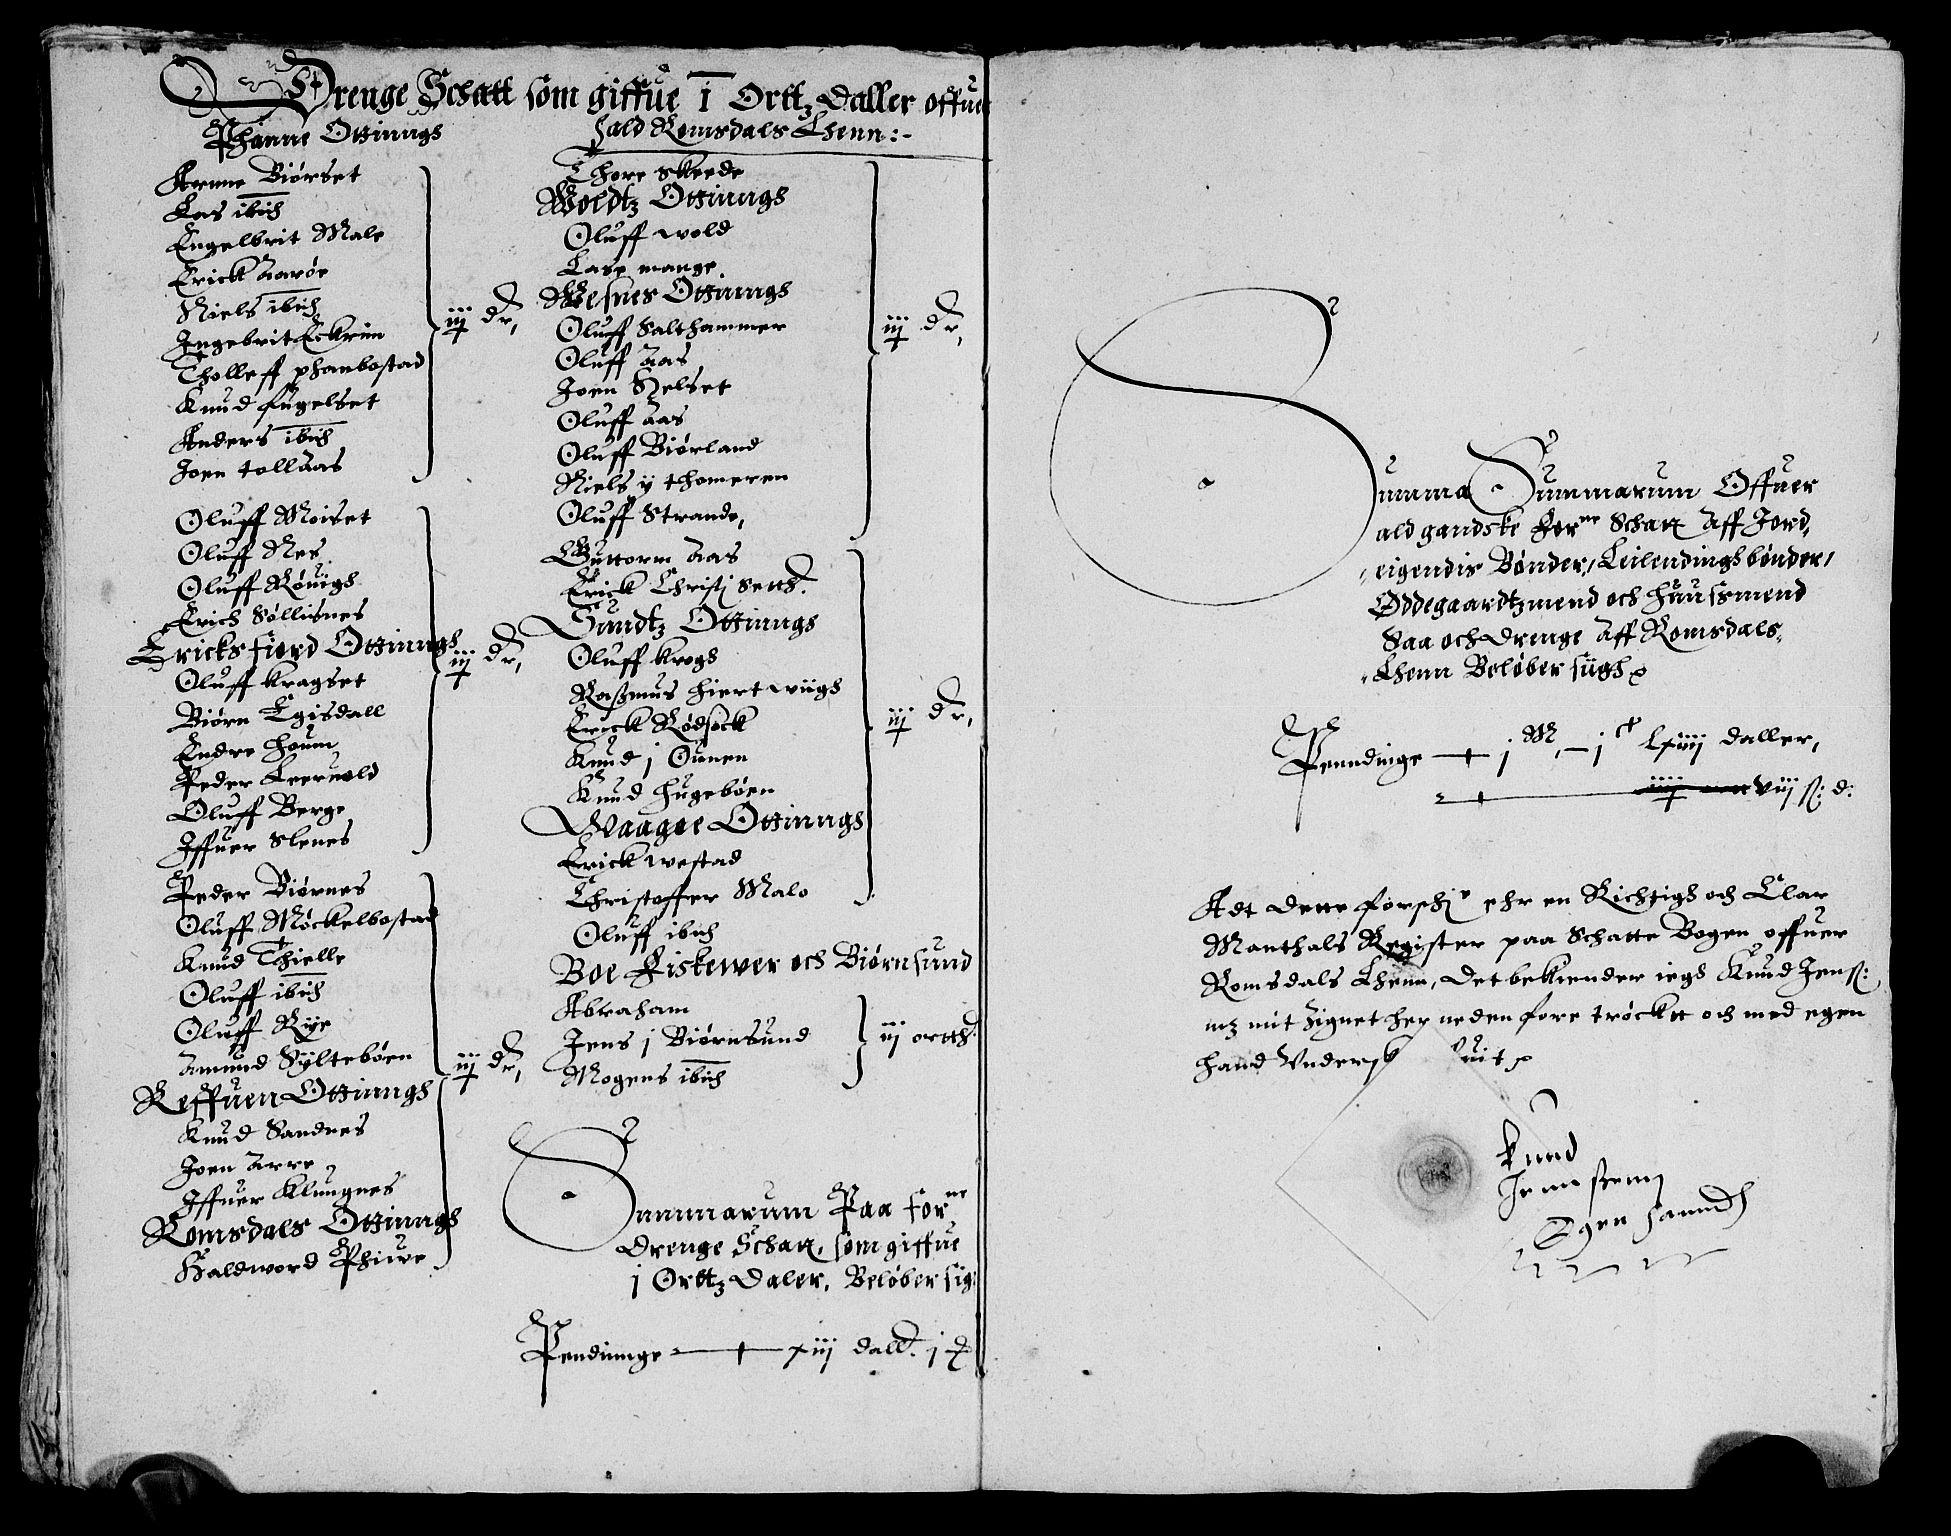 Drenge Schatt som giffue 1 Ortt Daller offuer
ald Romsdals Lhenn:-
Phanne Ottinngs
Arnne Biørset
Las ibid
Engelbrit Male
Erick Aarøe
Niels ibid
Ingebrit Eckrim
Tholleff phanbostad
Knud fugelset
Anders ibid
Joen tollaas
iij dr,
Oluff Moiset
Oluff Nes
Oluff Røuigs
Erich Søllisnes
Ericksfiord Ottinngs
Oluff kragset
Biørn Egisdall
Endre houm
Peder Leeruold
Oluff Berge
Iffuer Slenes
iij dr,
Peder Biørnes
Oluff Møckelbostad
Knud Thielle
Oluff ibid
Oluff Rye
Amund Syltebøen
Reffuen Ottinngs
Knud Sandnes
Joen Arre
Iffuer Klungnes
Romsdals Ottinngs
Haldword Phiure
iij dr,
Thore Skeede
Woldtz Ottinngs
Oluff wold
Lasse mange
Wesnes Ottinngs
Oluff Salthammer
Oluff Aas
Joen Helset
Oluff Aas
Oluff Biørland
Niels y thomeren
Oluff Strande,
iij dr,
Guttorm Aas
Erick
Sundtz Ottinngs
Oluff krogs
Rassmus hiertwiigs
Erick Rødsøck
Knud j Ounen
Knud hugebøen
Waagøe Ottinngs
Erick westad
Christoffer Malo
Oluff ibid
iij dr,
Boe Fiskewer och Biørnsund
Abraham
Jens j Biørnsund
Mogens ibid
iij ortth:
Summarum Paa forne
Drenge Schatt, som giffue
j Orttz Daler, Beløber sig
Pendinnge xiij dall. j
Summa Summarum Offuer
ald gandske forne Schatt Aff Jord,
eigendis Bønder, Leilendings bønder,
Ødegaardtzmend och huusmend
Saa och drenge Aff Romsdals,
Lhenn Beløber siigh
Penndinge j M, j c Lxiiij daller,
viij s: d:
Adt dette forschr ehr en Richtigh och Clar
Manthals Register paa Schatte Bogen offuer
Romsdals Lhenn, det bekiender iegh Knud Jenss:
mz mit Zignet her neden fore trøckt och med egen
hand Vndersk uit
knud
Jennssenn
Egen hanndh